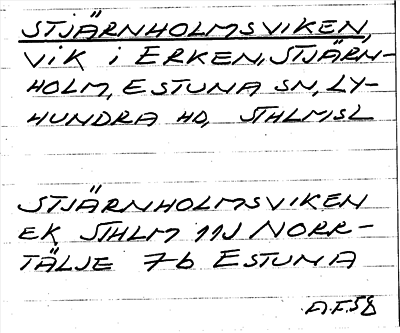 STJÄRNHOLMSVIKEN,
VIK I ERKEN, STJÄRN-
HOLM, ESTUNA SN, LY-
HUNDRA HD, STHLMSL
STJÄRNHOLMSVIKEN
EK STHLM 11J NORR-
TÄLJE 7b ESTUNA
A.F.58